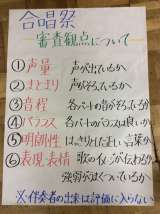 合唱祭
審査観点について
①声量 声が出ているか
②まとまり 声がそろっているか
③音程 各パートの音がそろっているか
④バランス 各パートのバランスは良いか
⑤明朗性 はっきりとした正しい言葉か
⑥表現・表情 歌のイメージが伝わるか
強弱がはくいているか
※伴奏者の出来は評価に入らない